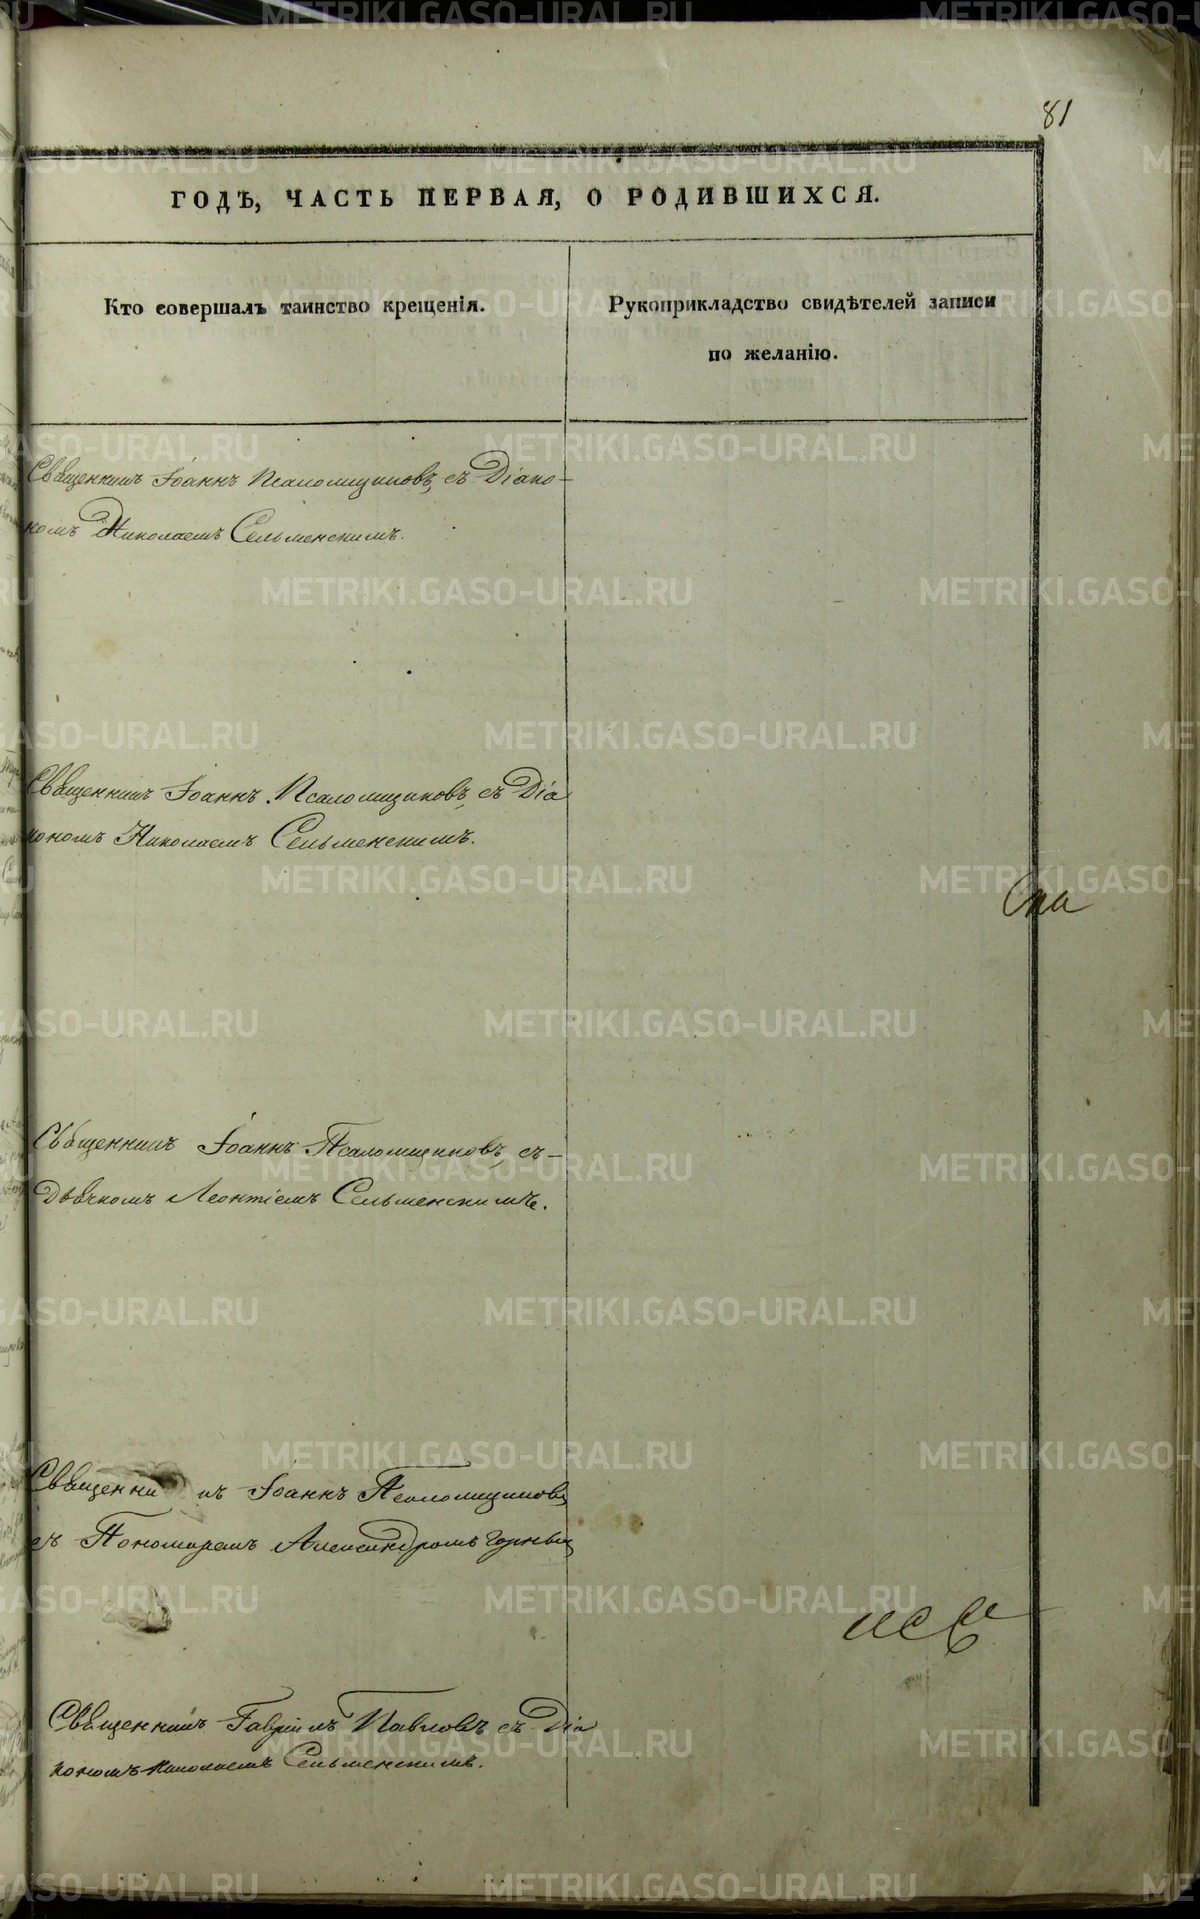 81
ГОДЪ, ЧАСТЬ ПЕРВАЯ, О РОДИВШИХСЯ.
Кто совершалъ таинство крещенія.
Рукоприкладство свидѣтелей записи
по желанію.
Священникъ Іоаннъ Псаломщиковъ, съ Діако-
номъ Николаемъ Сельменскимъ.
Священникъ Іоаннъ Псаломщиковъ, съ Діа
кономъ Николаемъ Сельменскимъ.
Священникъ Іоаннъ Псаломщиковъ, съ-
Дьячкомъ Леонтіемъ Сельменскимъ.
Священникъ Іоаннъ Псаломщиковъ
съ Пономаремъ Александромъ
Священникъ Гавріилъ Павловъ съ Діа
кономъ Николаемъ Сельменскимъ.
METRIKI.GASO-URAL.RU